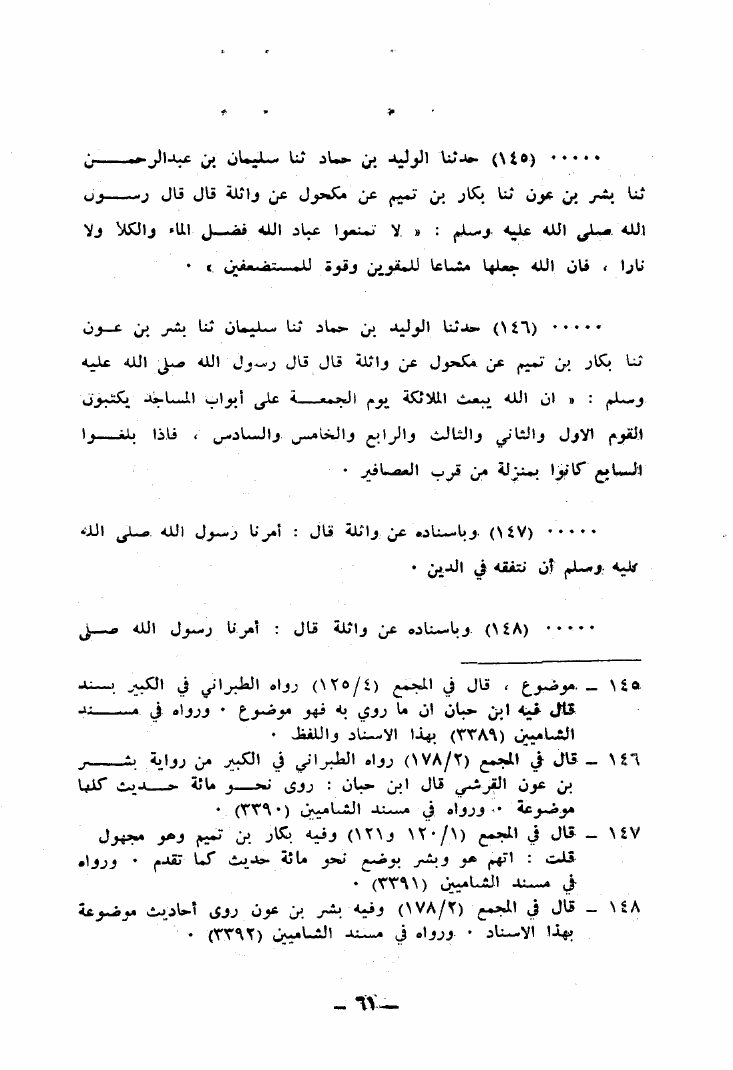 ..... (١٤٥) حدثنا الوليد بن حماد ثنا سليمان بن عبدالرحمـــــن
ثنا بشر بن عون ثنا بكار بن تميم عن مكحول عن واثلة قال قال رســـول
الله صلى الله عليه وسلم : « لا تمنعوا عباد الله فضـــل الماء والكلأ ولا
نارا ، فان الله جعلها متاعا للمقوين وقوة للمستضعفين » .
..... (١٤٦) حدثنا الوليد بن حماد ثنا سليمان ثنا بشر بن عـــون
ثنا بكار بن تميم عن مكحول عن واثلة قال قال رسول الله صلى الله عليه
وسلم : « ان الله يبعث الملائكة يوم الجمعـــة على أبواب المساجد يكتبون
القوم الاول والثاني والثالث والرابع والخامس والسادس ، فاذا بلغـــوا
السابع كانوا بمنزلة من قرب العصافير .
..... (١٤٧) وباسناده عن واثلة قال : أمرنا رسول الله صلى الله
عليه وسلم أن نتفقه في الدين .
..... (١٤٨) وباسناده عن واثلة قال : أمرنا رسول الله صـــلى
١٤٥ ـ موضوع ، قال في المجمع (١٢٥/٤) رواه الطبراني في الكبير بسند
قال فيه ابن حبان ان ما روي به فهو موضوع . ورواه في مســـند
الشاميين (٣٣٨٩) بهذا الاسناد واللفظ .
١٤٦ ـ قال في المجمع (١٧٨/٢) رواه الطبراني في الكبير من رواية بشـــر
بن عون القرشي قال ابن حبان : روى نحـــو مائة حـــديث كلها
موضوعة . ورواه في مسند الشاميين (٣٣٩٠) .
١٤٧ ـ قال في المجمع (١٢٠/١ و١٢١) وفيه بكار بن تميم وهو مجهول
قلت : اتهم هو وبشر بوضع نحو مائة حديث كما تقدم . ورواه
في مسند الشاميين (٣٣٩١) .
١٤٨ ـ قال في المجمع (١٧٨/٢) وفيه بشر بن عون روى أحاديث موضوعة
بهذا الاسناد . ورواه في مسند الشاميين (٣٣٩٢) .
ـ ٦١ ـ